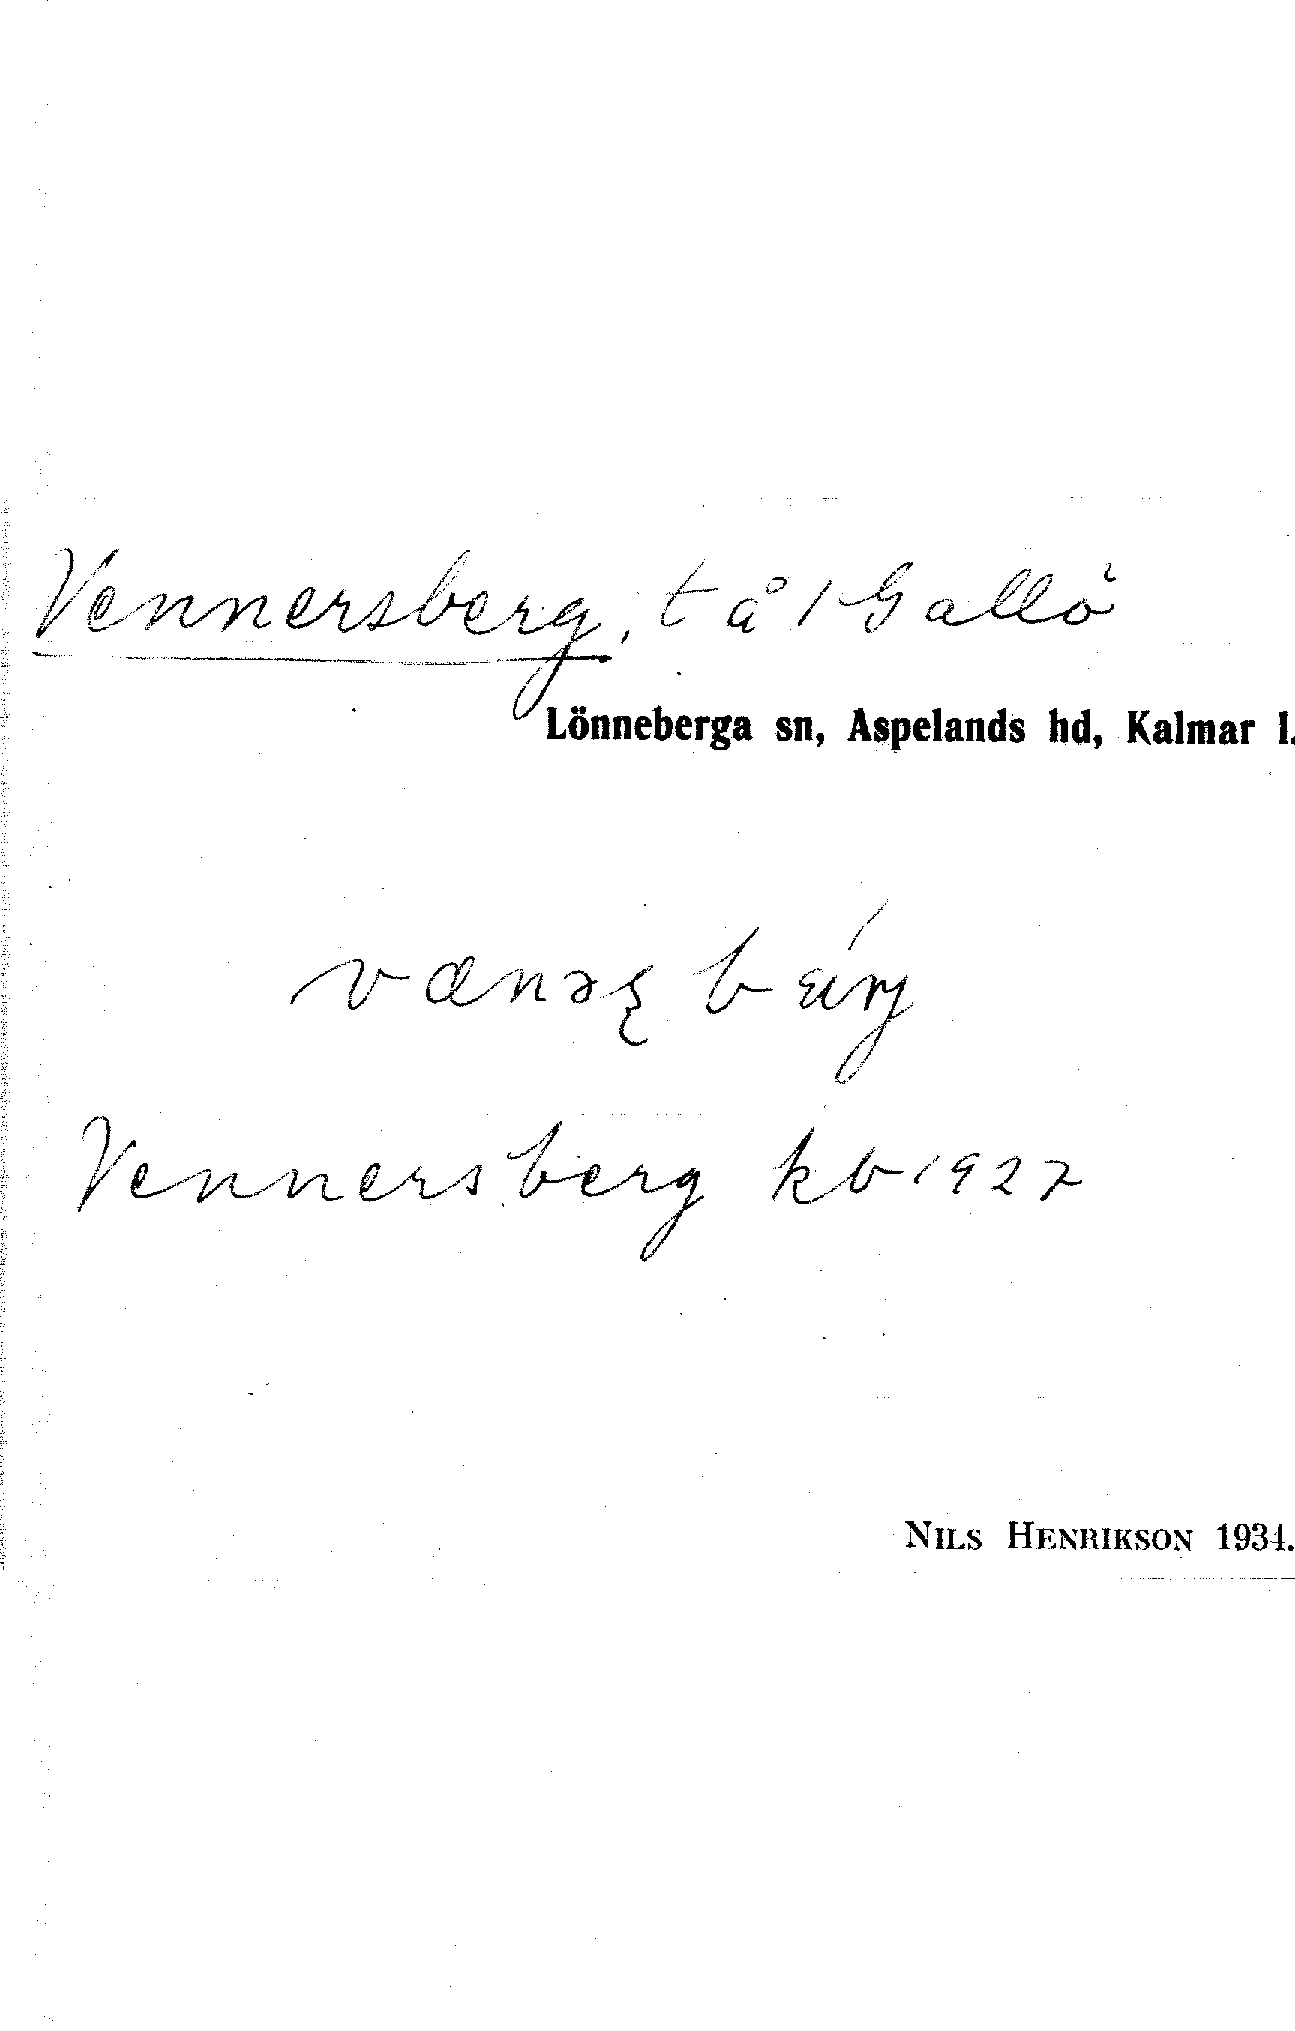 Vennersberg, t å 1 Gallö
Lönneberga sn, Aspelands hd, Kalmar l.
Vennersberg kb 1927
NILS HENRIKSON 1934.